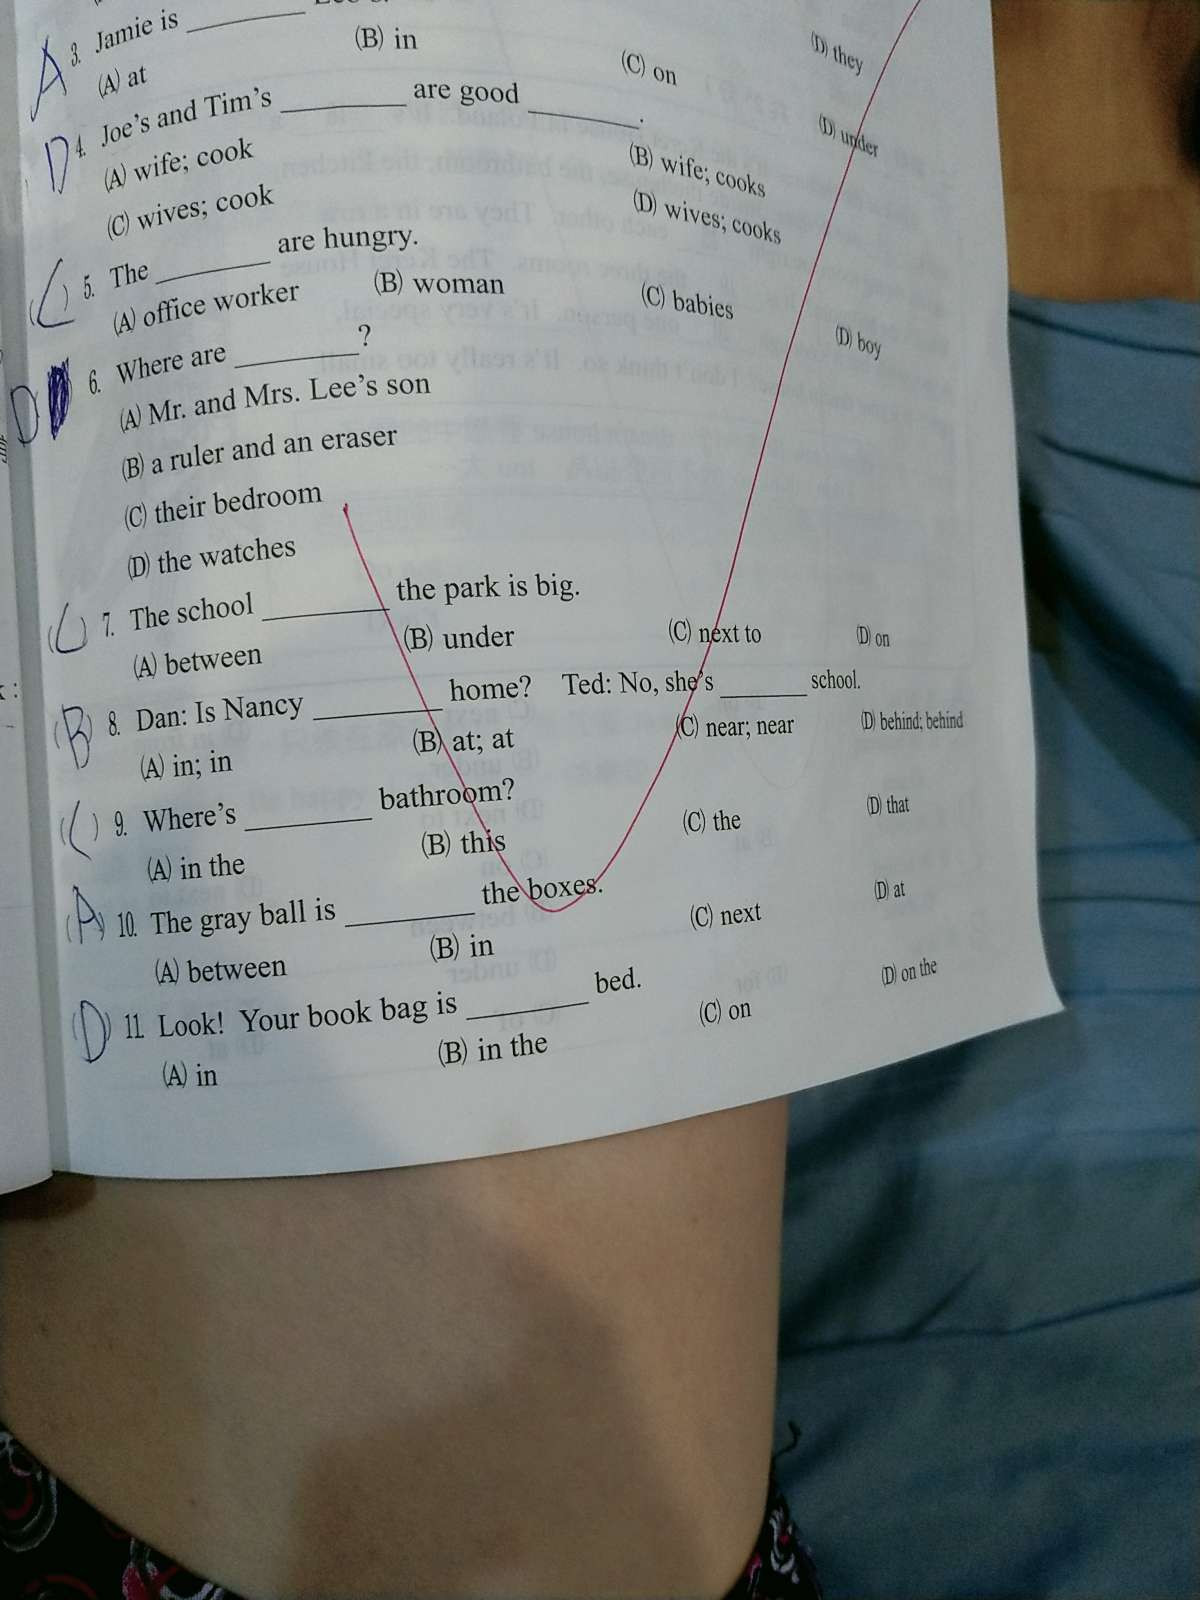 A 3. Jamie is ________
(A) at (B) in (C) on (D) they
D 4. Joe's and Tim's ________ are good ________.
(A) wife; cook (B) wife; cooks (D) under
(C) wives; cook (D) wives; cooks
(C) 5. The ________ are hungry.
(A) office worker (B) woman (C) babies (D) boy
D 6. Where are ________?
(A) Mr. and Mrs. Lee's son
(B) a ruler and an eraser
(C) their bedroom
(D) the watches
(C) 7. The school ________ the park is big.
(A) between (B) under (C) next to (D) on
(B) 8. Dan: Is Nancy ________ home? Ted: No, she's ________ school.
(A) in; in (B) at; at (C) near; near (D) behind; behind
(C) 9. Where's ________ bathroom?
(A) in the (B) this (C) the (D) that
(A) 10. The gray ball is ________ the boxes.
(A) between (B) in (C) next (D) at
(D) 11. Look! Your book bag is ________ bed.
(A) in (B) in the (C) on (D) on the